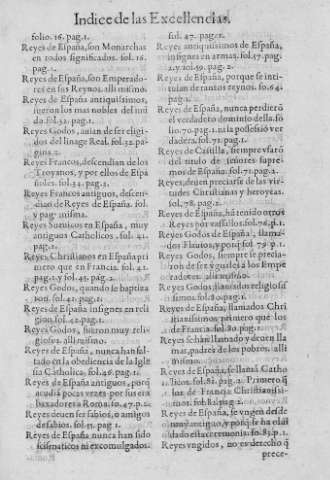 Indice de las Excellencias.
folio. 16. pag. 1.
Reyes de España, son Monarchas
en todos significados. fol. 16.
pag. 1.
Reyes de España, son Emperado-
res en sus Reynos. alli mismo.
Reyes de España antiquissimos,
fueron los mas nobles del mũ
do. fol. 32. pag. 1.
Reyes Godos, auian de ser eligi-
dos del linage Real. fol. 32. pa-
gina. 2.
Reyes Francos, descendian de los
Troyanos, y por ellos de Espa
ñoles. fol. 34. pag. 1.
Reyes Francos antiguos, descen-
dian de Reyes de España. fol.
y pag. misma.
Reyes en España, muy
antiguos Catholicos. fol. 41.
pag. 1.
Reyes Christianos en España pri
mero que en Francia. fol. 41.
pag. 2. y fol. 42. pag. 1.
Reyes Godos, quando se baptiza
ron. fol. 42. pag. 1.
Reyes de España insignes en reli
gion. fol. 42. pag. 1.
Reyes Godos, fueron muy reli-
giosos. alli mismo.
Reyes de España, nunca han fal-
tado en la obediencia de la Igle
sia Catholica. fol. 46. pag. 1.
Reyes de España antiguos, porq̃
acudiã pocas vezes por sus em
baxadores a Roma. fo. 47. p. 2.
Reyes deuen ser sabios, o amigos
de sabios. fol. 55. pag. 1.
Reyes de España nunca han sido
scismaticos ni excomulgados.
fol. 47. pag. 2.
Reyes antiquissimos de España,
insignes en armas. fol. 57. pag.
2. y fol. 59. pag. 2.
Reyes de España, porque se inti-
tulan de tantos reynos. fo. 64.
pag. 2.
Reyes de España, nunca perdierõ
el verdadero dominio della. fo
lio. 70. pag. 1. ni la possession ver
dadera. fol. 71. pag. 2.
Reyes de Castilla, siempre vsarõ
del titulo de señores supre-
mos de España. fol. 71. pag. 2.
Reyes, deuen preciarse de las vir-
tudes Christianas y heroycas.
fol. 78. pag. 2.
Reyes de España, hã tenido otros
Reyes por vassallos. fol. 76. p. 1.
Reyes Godos de España, llama-
dos Flauios, y porq̃. fol. 79. p. 1.
Reyes Godos, siempre se precia-
ron de ser yguales a los Empe
radores. alli mismo.
Reyes Godos, llamados religiosis
simos. fol. 80. pag. 1.
Reyes de España, llamados Chri
stianissimos primero que los
de Francia. fol. 80. pag. 1.
Reyes se han llamado y deuen lla
mar, padres de los pobres. alli
mismo.
Reyes de España, se llamã Catho
licos. fol. 81. pag. 2. Primero q̃
los de Francia Christianissi-
mos. fol. 82. pag. 2.
Reyes de España, se vngen desde
muy antiguo, y porq̃ se ha olui
dado esta ceremonia. fo. 83. p. 1.
Reyes vngidos, no es derecho q̃
prece-